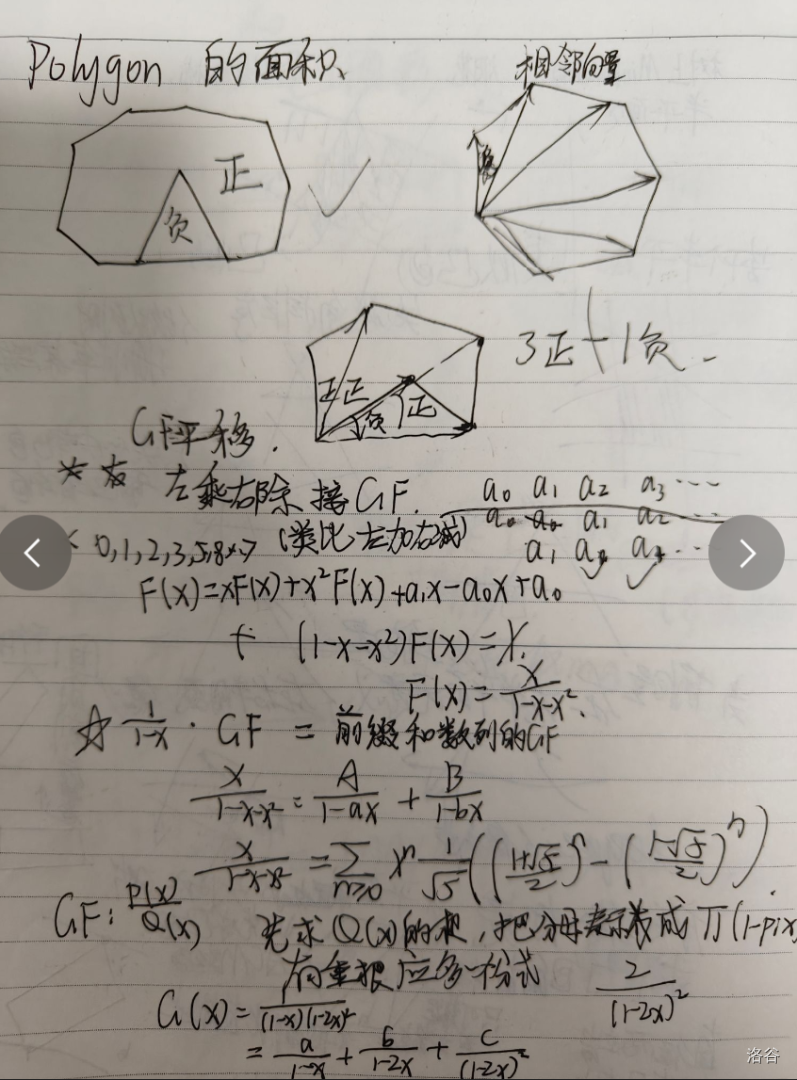 Polygon 的面积
相邻向量
正
负
负
3正 1负
正正
负 正
GF平移.
左乘右除 接GF.
(类比左加右减)
a₀ a₁ a₂ a₃ ...
a₀ a₁ a₂ ...
0,1,2,3,5,8
F(x)=xF(x)+x²F(x)+a₁x-a₀x+a₀
(1-x-x²)F(x)=x.
F(x)=x/(1-x-x²).
☆ 1/(1-x) · GF = 前缀和数列的GF
x/(1-x-x²) = A/(1-ax) + B/(1-bx)
x/(1-x-x²) = ∑n≥0 xⁿ 1/√5 (((1+√5)/2)ⁿ - ((1-√5)/2)ⁿ).
GF: P(x)/Q(x) 先求Q(x)的根, 把分母表示成 π(1-pix
有重根应多一份式 2/(1-2x)²
G(x)= 1/(1-x)(1-2x)²
= a/(1-x) + b/(1-2x) + c/(1-2x)²
洛谷